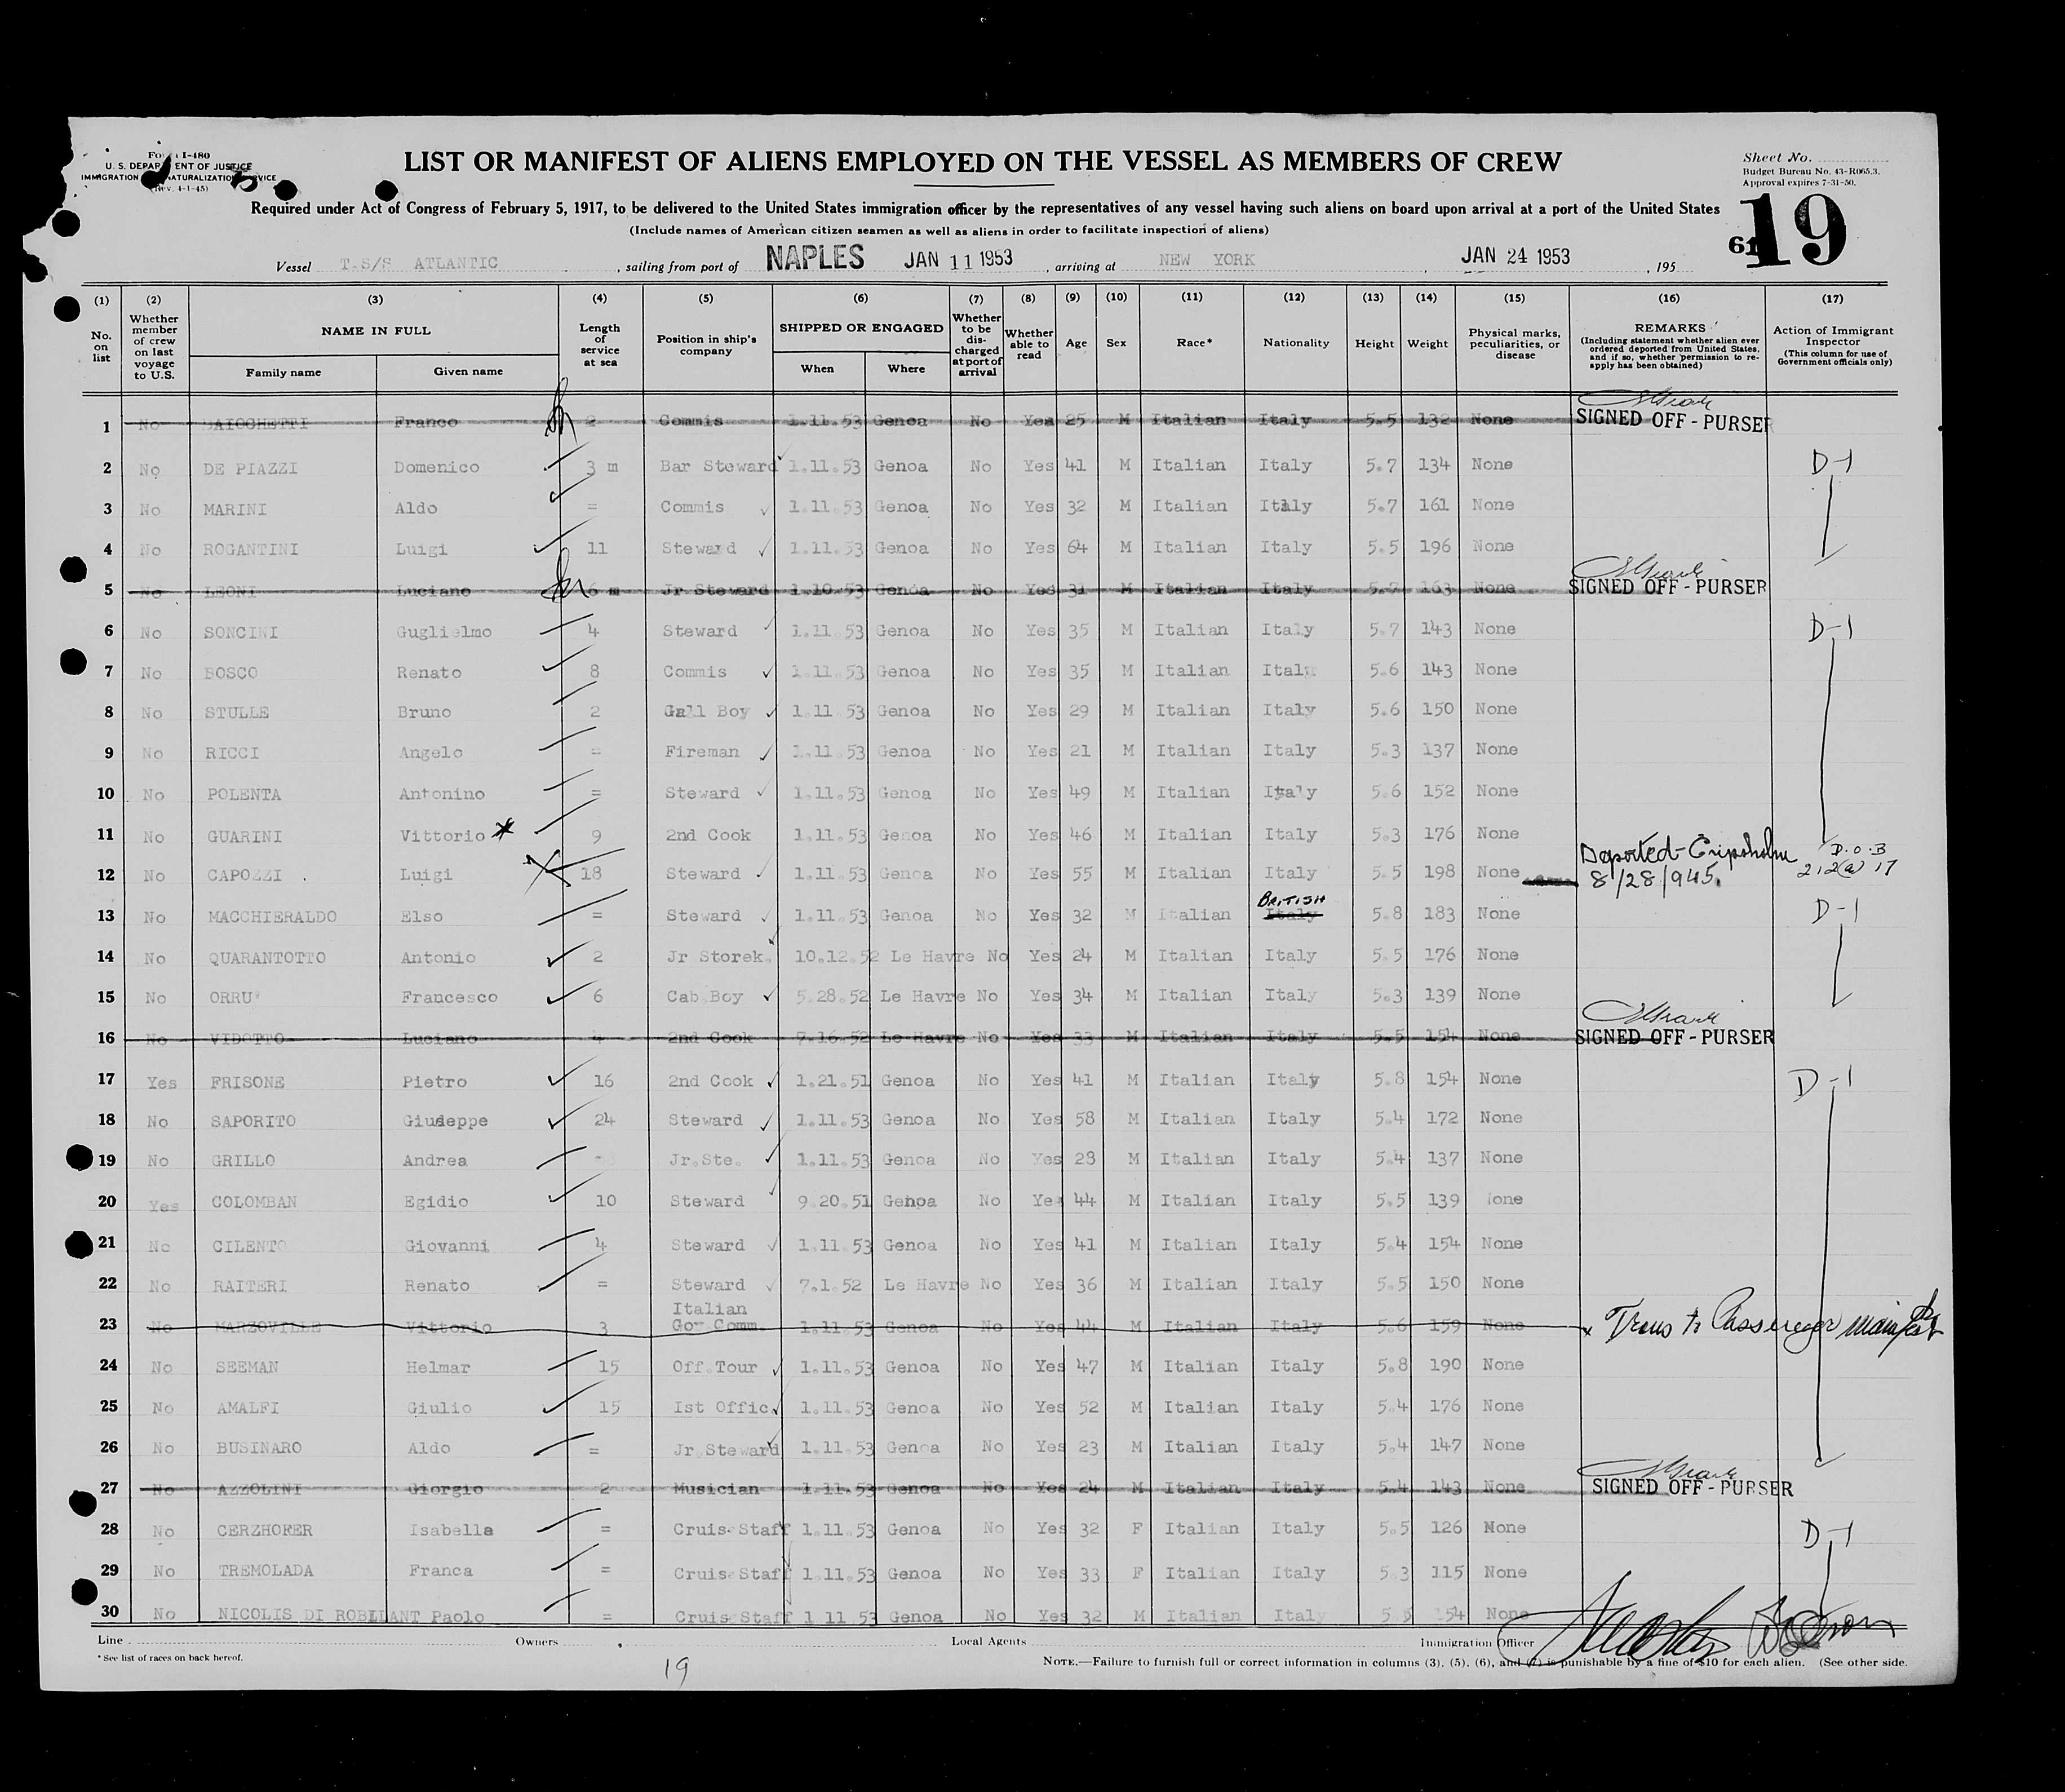 Form I-480
U. S. DEPARTMENT OF JUSTICE
IMMIGRATION AND NATURALIZATION SERVICE
(Rev. 4-1-45)
LIST OR MANIFEST OF ALIENS EMPLOYED ON THE VESSEL AS MEMBERS OF CREW
Sheet No.
Budget Bureau No. 43-R065.3.
Approval expires 7-31-50.
Required under Act of Congress of February 5, 1917, to be delivered to the United States immigration officer by the representatives of any vessel having such aliens on board upon arrival at a port of the United States
19
(Include names of American citizen seamen as well as aliens in order to facilitate inspection of aliens)
Vessel T.S/S ATLANTIC, sailing from port of NAPLES JAN 11 1953, arriving at NEW YORK, JAN 24 1953, 195
(1) (2) (3) (4) (5) (6) (7) (8) (9) (10) (11) (12) (13) (14) (15) (16) (17)
No. on list
Whether member of crew on last voyage to U.S.
NAME IN FULL
Family name
Given name
Length of service at sea
Position in ship's company
SHIPPED OR ENGAGED
When
Where
Whether to be discharged at port of arrival
Whether able to read
Age
Sex
Race*
Nationality
Height
Weight
Physical marks, peculiarities, or disease
REMARKS
(Including statement whether alien ever ordered deported from United States, and if so, whether permission to reapply has been obtained)
Action of Immigrant Inspector
(This column for use of Government officials only)
1 No BAIOCHETTI Franco 2 Commis 1.11.53 Genoa No Yes 25 M Italian Italy 5.5 132 None SIGNED OFF - PURSER
2 No DE PIAZZI Domenico 3 m Bar Steward 1.11.53 Genoa No Yes 41 M Italian Italy 5.7 134 None D-1
3 No MARINI Aldo = Commis 1.11.53 Genoa No Yes 32 M Italian Italy 5.7 161 None
4 No ROGANTINI Luigi 11 Steward 1.11.53 Genoa No Yes 64 M Italian Italy 5.5 196 None
5 No LEONI Luciano 6 m Jr Steward 1.10.53 Genoa No Yes 31 M Italian Italy 5.7 163 None SIGNED OFF - PURSER
6 No SONCINI Guglielmo 4 Steward 1.11.53 Genoa No Yes 35 M Italian Italy 5.7 143 None D-1
7 No BOSCO Renato 8 Commis 1.11.53 Genoa No Yes 35 M Italian Italy 5.6 143 None
8 No STULLE Bruno 2 Gall Boy 1.11.53 Genoa No Yes 29 M Italian Italy 5.6 150 None
9 No RICCI Angelo = Fireman 1.11.53 Genoa No Yes 21 M Italian Italy 5.3 137 None
10 No POLENTA Antonino = Steward 1.11.53 Genoa No Yes 49 M Italian Italy 5.6 152 None
11 No GUARINI Vittorio 9 2nd Cook 1.11.53 Genoa No Yes 46 M Italian Italy 5.3 176 None
12 No CAPOZZI Luigi 18 Steward 1.11.53 Genoa No Yes 55 M Italian Italy 5.5 198 None Deported-Gripsholm 8/28/945. D.O.B 212(a) 17
13 No MACCHIERALDO Elso = Steward 1.11.53 Genoa No Yes 32 M Italian Italy BRITISH 5.8 183 None D-1
14 No QUARANTOTTO Antonio 2 Jr Storek. 10.12.52 Le Havre No Yes 24 M Italian Italy 5.5 176 None
15 No ORRU' Francesco 6 Cab.Boy 5.28.52 Le Havre No Yes 34 M Italian Italy 5.3 139 None
16 No VIDOTTO Luciano 4 2nd Cook 7.16.52 Le Havre No Yes 33 M Italian Italy 5.5 154 None SIGNED OFF - PURSER
17 Yes FRISONE Pietro 16 2nd Cook 1.21.51 Genoa No Yes 41 M Italian Italy 5.8 154 None D-1
18 No SAPORITO Giuseppe 24 Steward 1.11.53 Genoa No Yes 58 M Italian Italy 5.4 172 None
19 No GRILLO Andrea Jr.Ste. 1.11.53 Genoa No Yes 28 M Italian Italy 5.4 137 None
20 Yes COLOMBAN Egidio 10 Steward 9.20.51 Genoa No Yes 44 M Italian Italy 5.5 139 None
21 No CILENTO Giovanni 4 Steward 1.11.53 Genoa No Yes 41 M Italian Italy 5.4 154 None
22 No RAITERI Renato = Steward 7.1.52 Le Havre No Yes 36 M Italian Italy 5.5 150 None
23 No MARZOVILLE Vittorio 3 Italian Gov Comm. 1.11.53 Genoa No Yes 44 M Italian Italy 5.6 159 None x Trans to Passenger manifest
24 No SEEMAN Helmar 15 Off.Tour 1.11.53 Genoa No Yes 47 M Italian Italy 5.8 190 None
25 No AMALFI Giulio 15 Ist Offic. 1.11.53 Genoa No Yes 52 M Italian Italy 5.4 176 None
26 No BUSINARO Aldo = Jr.Steward 1.11.53 Genoa No Yes 23 M Italian Italy 5.4 147 None
27 No AZZOLINI Giorgio 2 Musician 1.11.53 Genoa No Yes 24 M Italian Italy 5.4 143 None SIGNED OFF - PURSER
28 No CERZHOFER Isabella = Cruis-Staff 1.11.53 Genoa No Yes 32 F Italian Italy 5.5 126 None D-1
29 No TREMOLADA Franca = Cruis-Staff 1.11.53 Genoa No Yes 33 F Italian Italy 5.3 115 None
30 No NICOLIS DI ROBILANT Paolo = Cruis-Staff 1 11 53 Genoa No Yes 32 M Italian Italy 154 None
Line Owners Local Agents Immigration Officer
* See list of races on back hereof.
19
NOTE.—Failure to furnish full or correct information in columns (3), (5), (6), and (7) is punishable by a fine of $10 for each alien. (See other side.